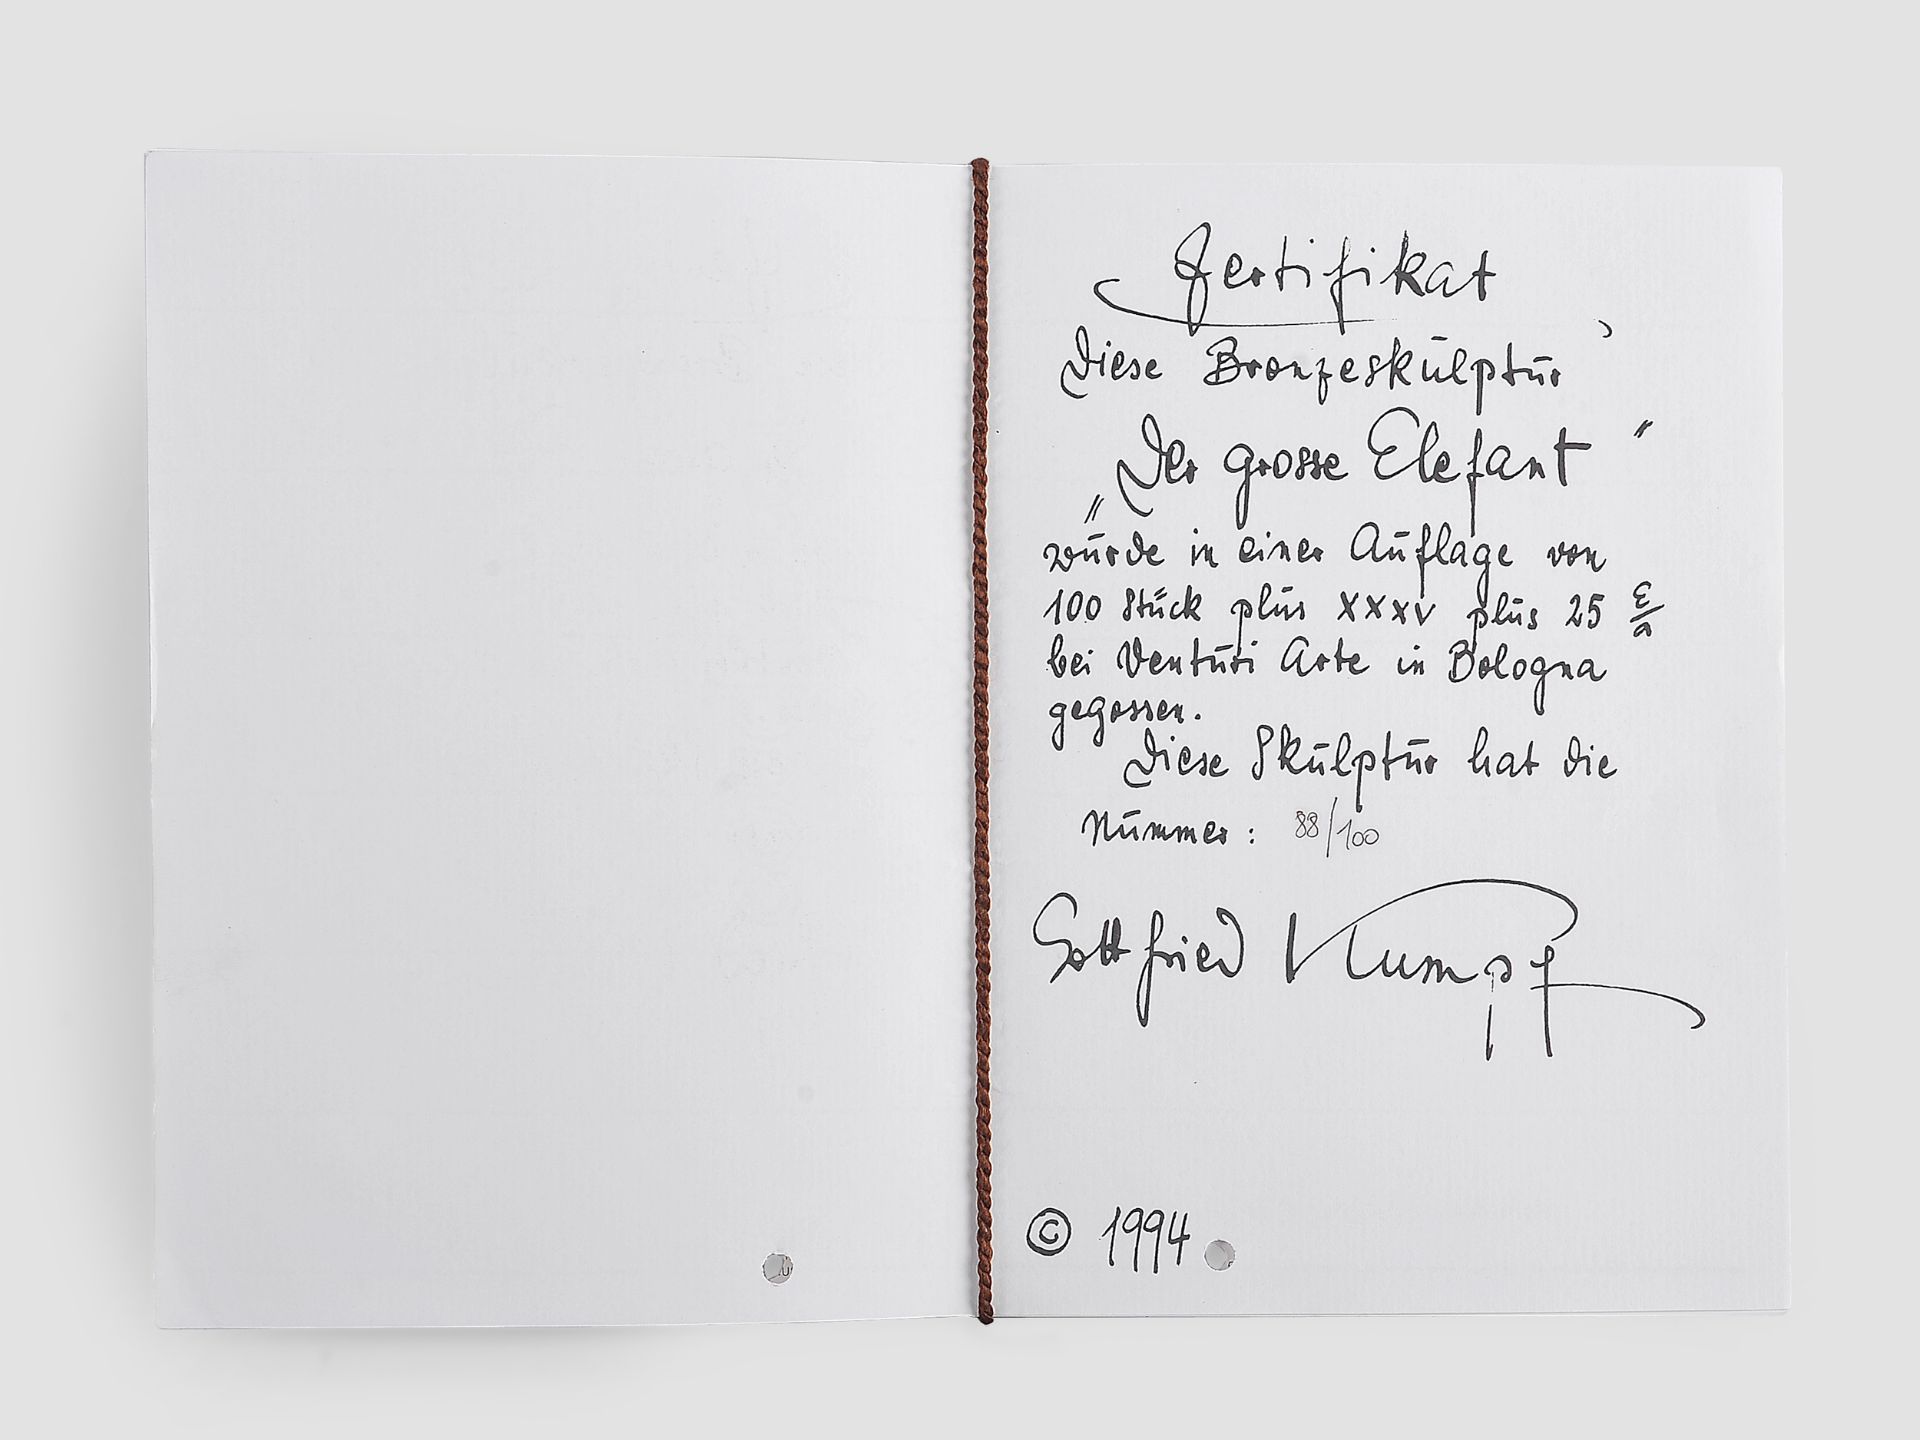 Zertifikat
Diese Bronzeskulptur
„Der grosse Elefant"
wurde in einer Auflage von
100 Stück plus XXXV plus 25 E/a
bei Venturi Arte in Bologna
gegossen.
Diese Skulptur hat die
Nummer: 88/100
Gottfried Kumpf
© 1994